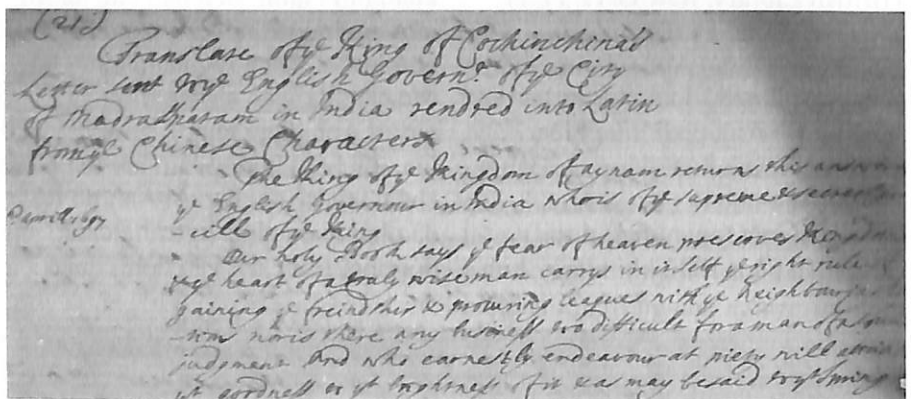 (21)
Translate of ye King of Cochinchina's
Letter sent to ye English Governr. of ye City
of Madraspatam in India rendred into Latin
from ye Chinese Characters
The King of ye Kingdom of aynam returns this answer
ye English Governour in India who is of ye supreme & secret
-cill of ye King
Our holy Book says ye fear of heaven preserves
& ye heart of a truly wise man carrys in it self ye right rule
gaining ye freindship & procuring leagues with ye Neighbouring
nor is there any business too difficult for a man of
judgment And who earnestly endeavour at piety will
yt goodness or yt brightness of it & as may be said to yt